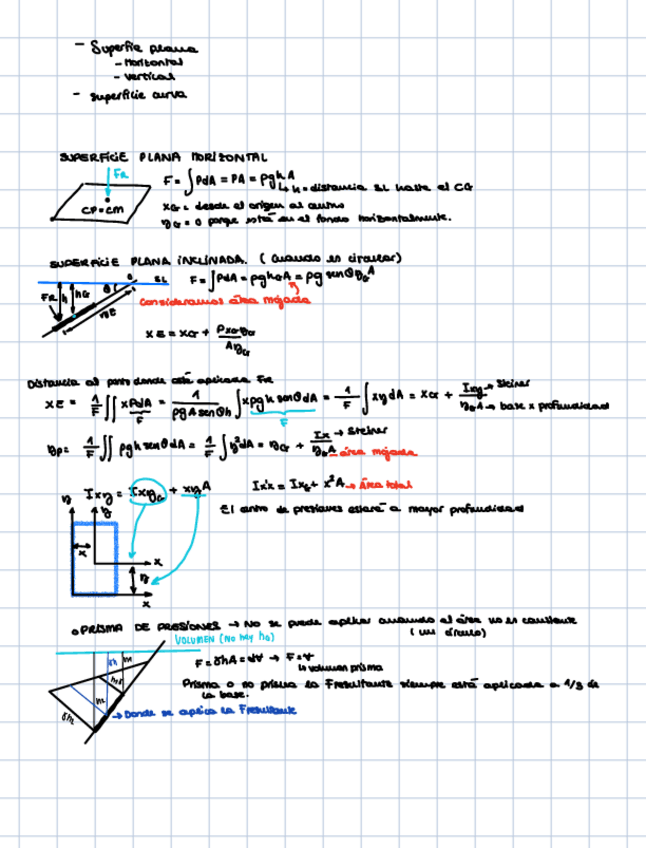 - Superficie plana
- Horizontal
- vertical
- superficie curva
SUPERFICIE PLANA HORIZONTAL
FR
CP=CM
F = ∫PdA = PA = ρghA
↳ h = distancia SL hasta el CG
xG = desde el origen al centro
yG = 0 porque está en el fondo horizontalmente.
SUPERFICIE PLANA INCLINADA. (cuando es circular)
SL
θ
FR h hG
F = ∫PdA = ρghGA = ρg senθ yG A
Consideramos área mojada
XE = XG + PxGyG / AyG
Distancia al punto donde está aplicada FR
XE = 1/F ∬ xPdA/F = 1/ρgAsenθh ∫xρgh senθdA = 1/F ∫xydA = XG + Ixy → Steiner / yGA → base x profundidad
F
yp = 1/F ∬ ρgh senθdA = 1/F ∫y²dA = yG + Ix → Steiner / yGA → área mojada
Ixy = IxyG + xyA
Ixx = IxG + x²A → Área total
El centro de presiones estará a mayor profundidad
y y
x
x
y
x
• PRISMA DE PRESIONES → No se puede aplicar cuando el área no es constante
(un círculo)
VOLUMEN (No hay hG)
F = γhA = γ∀ → F = ∀
↳ volumen prisma
Prisma o no prisma la Fresultante siempre está aplicada a 1/3 de
la base.
→ Donde se aplica la Fresultante